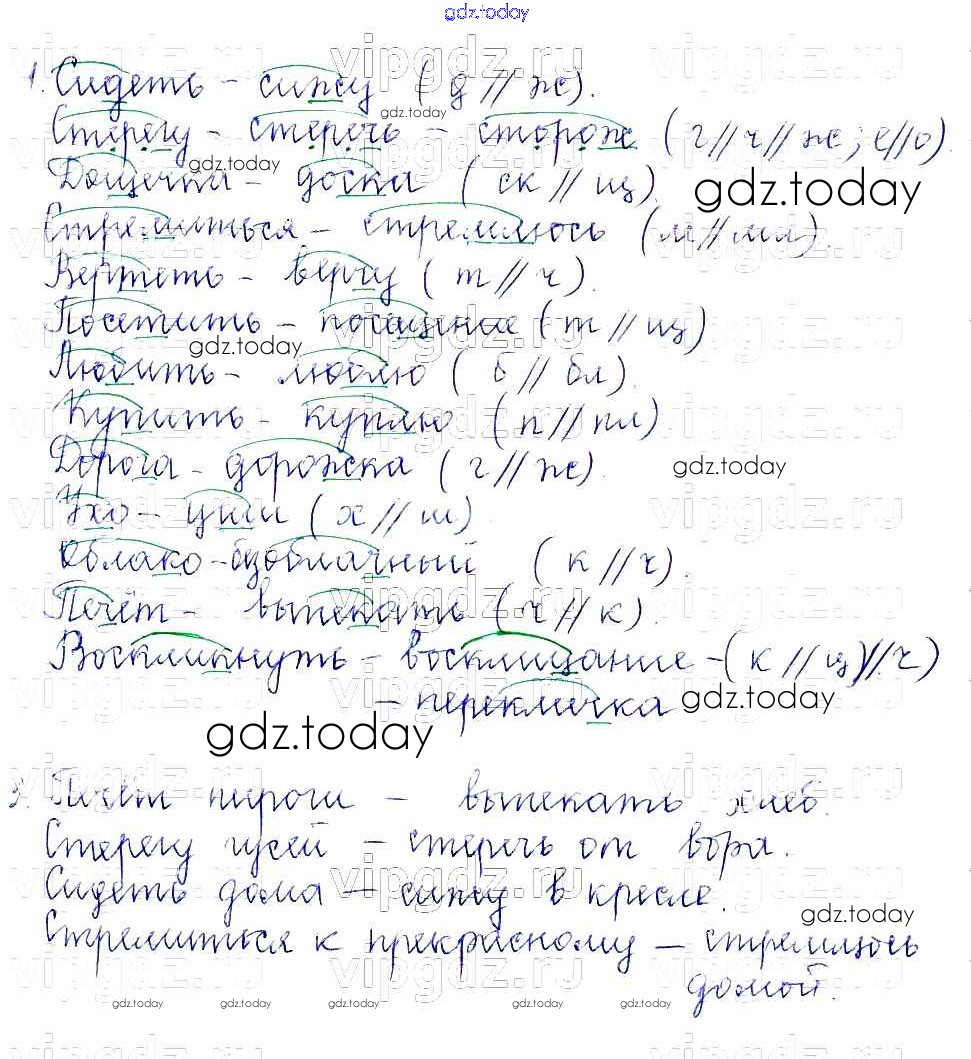 gdz.today
1. Сидеть - сижу (д // ж).
Стерегу - стеречь - сторож (г // ч // ж; е//о).
gdz.today
Дощечка - доска (ск // щ).
gdz.today
Стремиться - стремлюсь (м // мл).
Вертеть - верчу (т // ч).
Посетить - посещение (т // щ)
gdz.today
Любить - люблю (б // бл).
Купить - куплю (п // пл).
Дорога - дорожка (г // ж).
gdz.today
Ухо - уши (х // ш).
Облако - безоблачный (к // ч).
Печёт - выпекать (ч // к).
gdz.today
Воскликнуть - восклицание - (к // ц // ч)
- перекличка
gdz.today
gdz.today
3. Печёт пироги - выпекать хлеб.
Стерегу гусей - стеречь от вора.
Сидеть дома - сижу в кресле.
gdz.today
Стремиться к прекрасному - стремлюсь
домой.
gdz.today gdz.today gdz.today gdz.today
vipgdz.ru